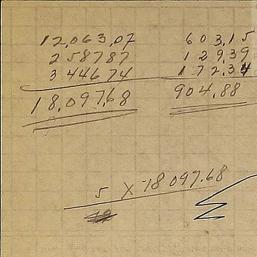 12,063,07
258787
344674
18,097,68
603,15
129,39
172.34
904.88
5 X 18097.68